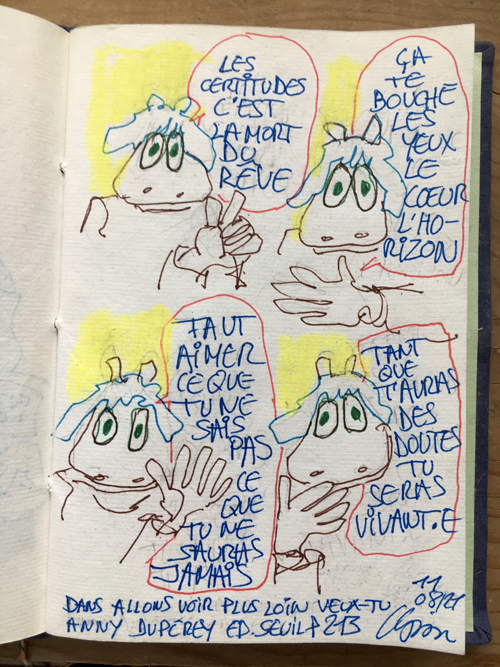 LES
CERTITUDES
C'EST
LA MORT
DU
RÊVE
ÇA
TE
BOUCHE
LES
YEUX
LE
COEUR
L'HO-
RIZON
FAUT
AIMER
CE QUE
TU NE
SAIS
PAS
CE
QUE
TU NE
SAURAS
JAMAIS
TANT
QUE
T'AURAS
DES
DOUTES
TU
SERAS
VIVANT.E
DANS ALLONS VOIR PLUS LOIN VEUX-TU
ANNY DUPEREY ED. SEUIL P 213
11
08/21